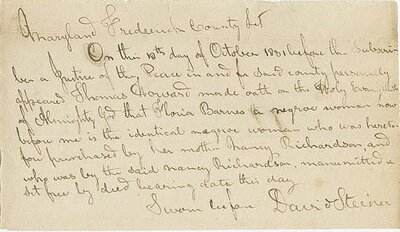 Maryland Frederick County Sct
On this 18th day of October 1831 before the Subscri
ber a Justice of the Peace in and for Said county personally
appeared Thomas Howard made oath on the Holy Evangels
of Almighty God that Barnes a negroe woman now
before me is the identical negroe woman who was hereto-
for purchased by her mother Nancy Richardson, and
who was by the said Nancy Richardson, manumitted &
set free by deed bearing date this day
Sworn before David Steiner